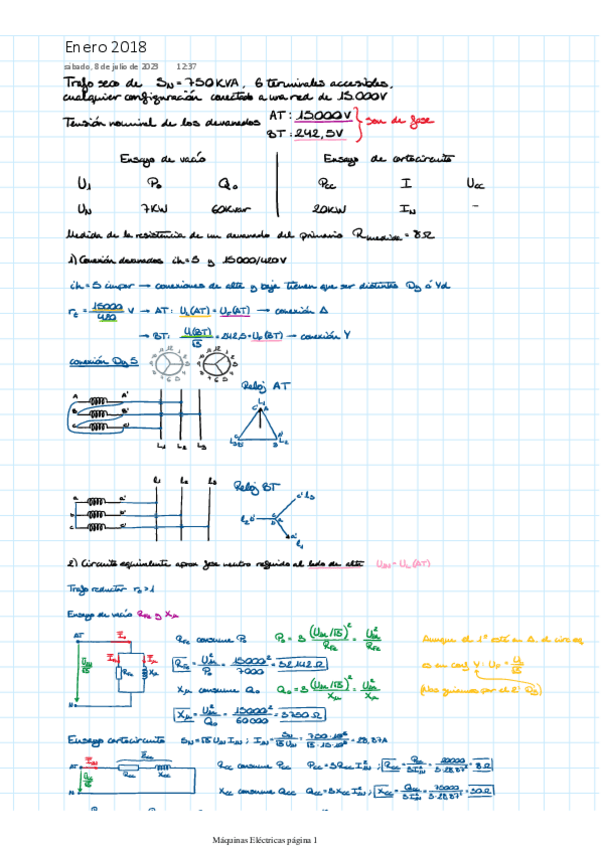 Enero 2018
sábado, 8 de julio de 2023 12:37
Trafo seco de SN = 750KVA, 6 terminales accesibles,
cualquier configuración conectado a una red de 15.000V
Tensión nominal de los devanados AT: 15.000V
BT: 242,5V
son de fase
Ensayo de vacío Ensayo de cortocircuito
U1 Po Qo Pcc I Ucc
UN 7KW 60Kvar 20KW IN -
Medida de la resistencia de un devanado del primario Rmedida = 8Ω
1) Conexión devanados ih=5 y 15000/420V
ih=5 impar → conexiones de alta y baja tienen que ser distintas Dy ó Yd
rt = 15000/420 V → AT: UL(AT) = UF(AT) → conexión Δ
→ BT: UL(BT)/√3 = 242,5 = UF(BT) → conexión Y
conexión Dy5
Reloj AT
A A'
B B'
C C'
L1 L2 L3
Reloj BT
a a'
b b'
c c'
l1 l2 l3
2) Circuito equivalente aprox fase neutro referido al lado de alta U1N = UL(AT)
Trafo reductor rt > 1
Ensayo de vacío RFe y Xμ
AT
RFe consume Po Po = 3 (U1N/√3)²/RFe = U1N²/RFe
RFe = U1N²/Po = 15000²/7000 = 32142Ω
Xμ consume Qo Qo = 3 (U1N/√3)²/Xμ = U1N²/Xμ
Xμ = U1N²/Qo = 15000²/60000 = 3750Ω
Aunque el 1º esté en Δ, el circ eq
es en conf Y: UF = UL/√3
Ensayo cortocircuito SN = √3 UN I1N; I1N = SN/√3 UN = 750·10³/√3·15·10³ = 28,87A
AT
Rcc consume Pcc Pcc = 3Rcc I1N²; Rcc = Pcc/3I1N² = 20000/3·28,87² = 8Ω
Xcc consume Qcc Qcc = 3Xcc I1N²; Xcc = Qcc/3I1N² = 75000/3·28,87² = 30Ω
Máquinas Eléctricas página 1